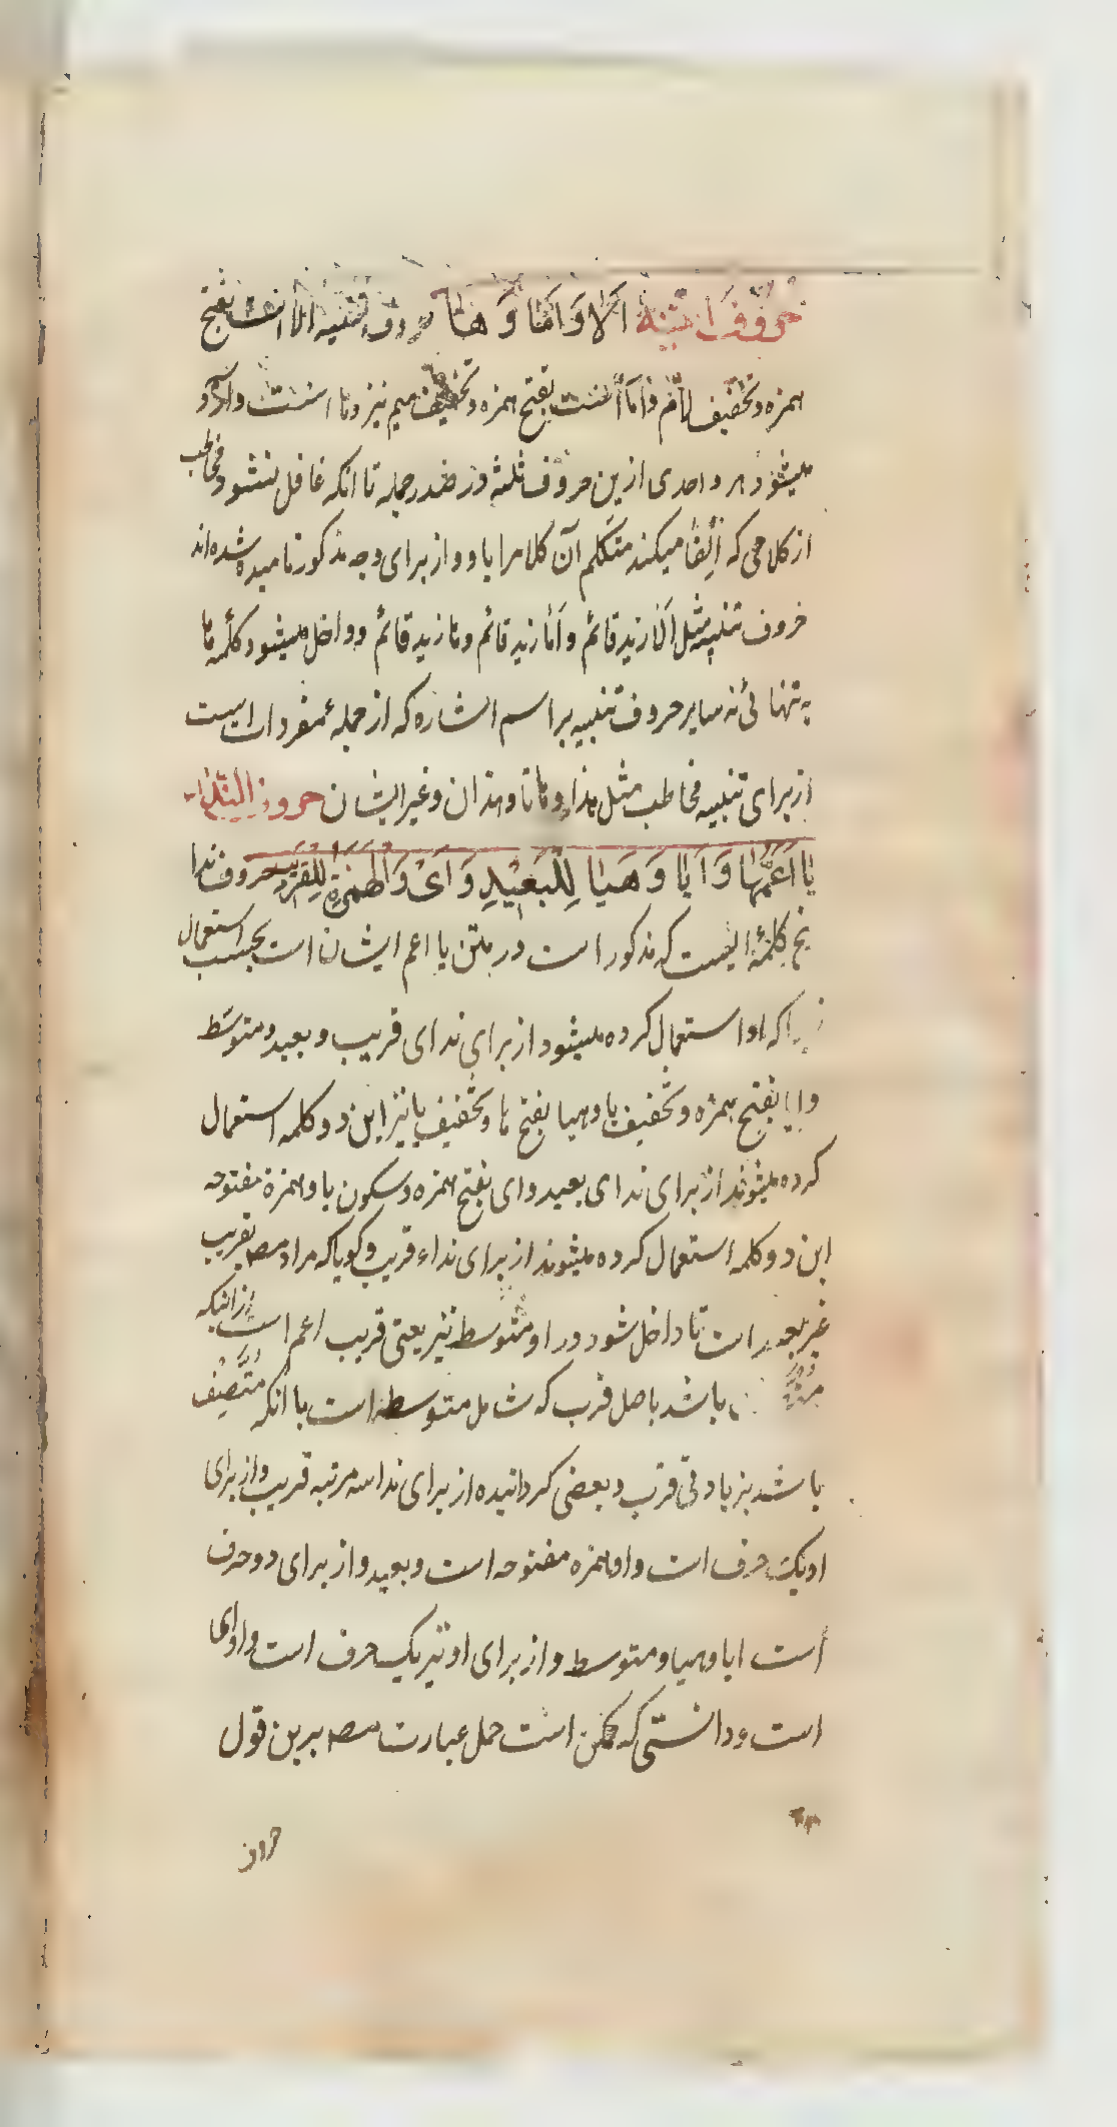 حروف التنبیه اَلا وَ اَمَا وَ هَا حروف تنبیه الا است بفتح
همزه و تخفیف لام و اما است بفتح همزه و تخفیف میم نیز و ها است و در آورده
میشود هر واحدی ازین حروف ثلثه در صدر جمله تا انکه غافل نشود مخاطب
از کلامی که القا میکند متکلم آن کلام را باو و از برای وجه مذکور نامیده شده اند
حروف تنبیه مثل اَلا زید قائم و اَمَا زید قائم و ها زید قائم و داخل میشود کلمه ها
به تنهائی نه سایر حروف تنبیه بر اسم اشاره که از جمله مفردات است
از برای تنبیه مخاطب مثل هذا و هاتا و هذان و غیر ایشان حروف النداء
یا اَعَمُّها وَ اَیا وَ هَیا لِلْبَعِیْدِ وَ اَیْ وَ الْهَمْزَةُ لِلْقَرِیْبِ حروف ندا
پنج کلمه ایست که مذکور است در متن یا اعم ایشان است بحسب استعمال
زیرا که او استعمال کرده میشود از برای ندای قریب و بعید و متوسط
و ایا بفتح همزه و تخفیف یا و هیا بفتح ها و تخفیف یا نیز این دو کلمه استعمال
کرده میشوند از برای ندای بعید و ای بفتح همزه و سکون یا و همزة مفتوحه
این دو کلمه استعمال کرده میشوند از برای نداء قریب و گویا که مراد مصـ بقریب
غیر بعید است تا داخل شود در او متوسط نیز یعنی قریب اعم است از انیکه
متصف باشد باصل قرب که شامل متوسط است یا انکه متصف
باشد بزیادتی قرب و بعضی گردانیده از برای ندا سه مرتبه قریب و از برای
او یک حرف است و او همزه مفتوحه است و بعید و از برای او دو حرف
است ایا و هیا و متوسط و از برای او نیز یک حرف است و او ای
است و دانستی که ممکن است حمل عبارت مصـ برین قول